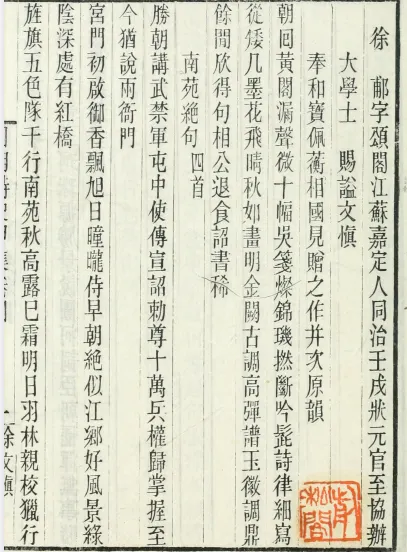 徐郙字頌閣江蘇嘉定人同治壬戌狀元官至協辦
大學士 賜諡文慎
奉和寶佩蘅相國見贈之作并次原韻
朝回黃閣漏聲微十幅吳箋燦錦璣撚斷吟髭詩律細寫
從矮几墨花飛晴秋如畫明金闕古調高彈譜玉徽調鼎
餘閒欣得句相公退食詔書稀
南苑絕句 四首
勝朝講武禁軍屯中使傳宣詔勅尊十萬兵權歸掌握至
今猶說兩衙門
宮門初啟御香飄旭日曈曨侍早朝絕似江鄉好風景綠
陰深處有紅橋
旌旗五色隊千行南苑秋高露已霜明日羽林親校獵行
徐文慎